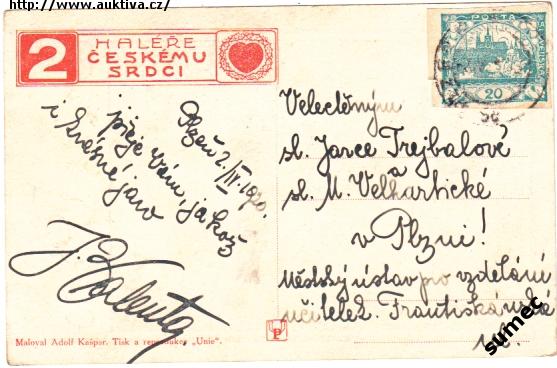 http://www.auktiva.cz/
2
HALÉŘE
ČESKÉMU
SRDCI
POŠTA
20
Plzeň 2./IV. 1920.
přeje Vám, jakož
i krásné jaro
J. Valenta
Velectěným
sl. Jarce Trejbalové
a
sl. M. Velhartické
v Plzni!
Městský ústav pro vzdělání
učitelek. Františkánská
ul.
Maloval Adolf Kašpar. Tisk a reprodukce „Unie“.
P
sumec